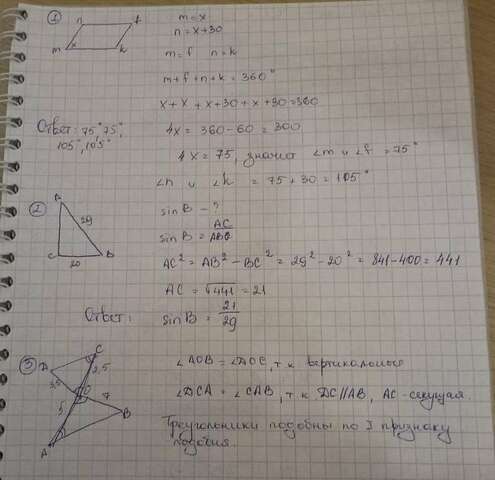 ① n f m x k
m = x
n = x+30
m = f n = k
m+f+n+k = 360°
x + x + x+30 + x +30 = 360
4x = 360-60 = 300
4x = 75, значит ∠m и ∠f = 75°
∠n и ∠k = 75+30 = 105°
Ответ: 75°, 75°,
105°, 105°
② A 29 C 20 B
sin B - ?
sin B = AC/AB
AC² = AB² - BC² = 29² - 20² = 841-400 = 441
AC = √441 = 21
Ответ: sin B = 21/29
③ D C 3,5 2,5 O 5 7 B A
∠AOB = ∠DOC, т.к вертикальные
∠DCA = ∠CAB, т.к DC//AB, AC-секущая.
Треугольники подобны по I признаку
подобия.